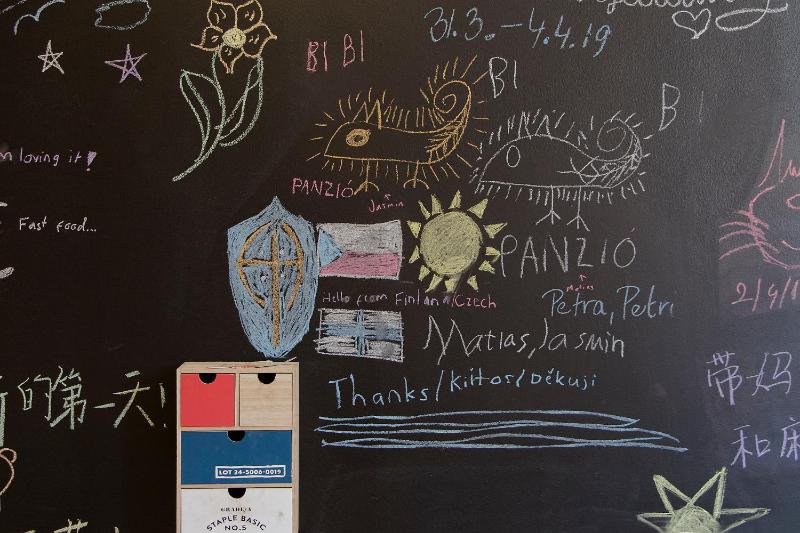 31.3.-4.4.19
BI BI
BI
BI
m loving it!
PANZIÓ
Jasmin
Fast food...
PANZIÓ
Matias
Hello from Finland/Czech
Petra, Petri
2/4/1
Matias, Jasmin
Thanks/Kiitos/Děkuji
的第一天!
带妈
和麻
LOT 24-5006-0019
STAPLE BASIC
NO.5